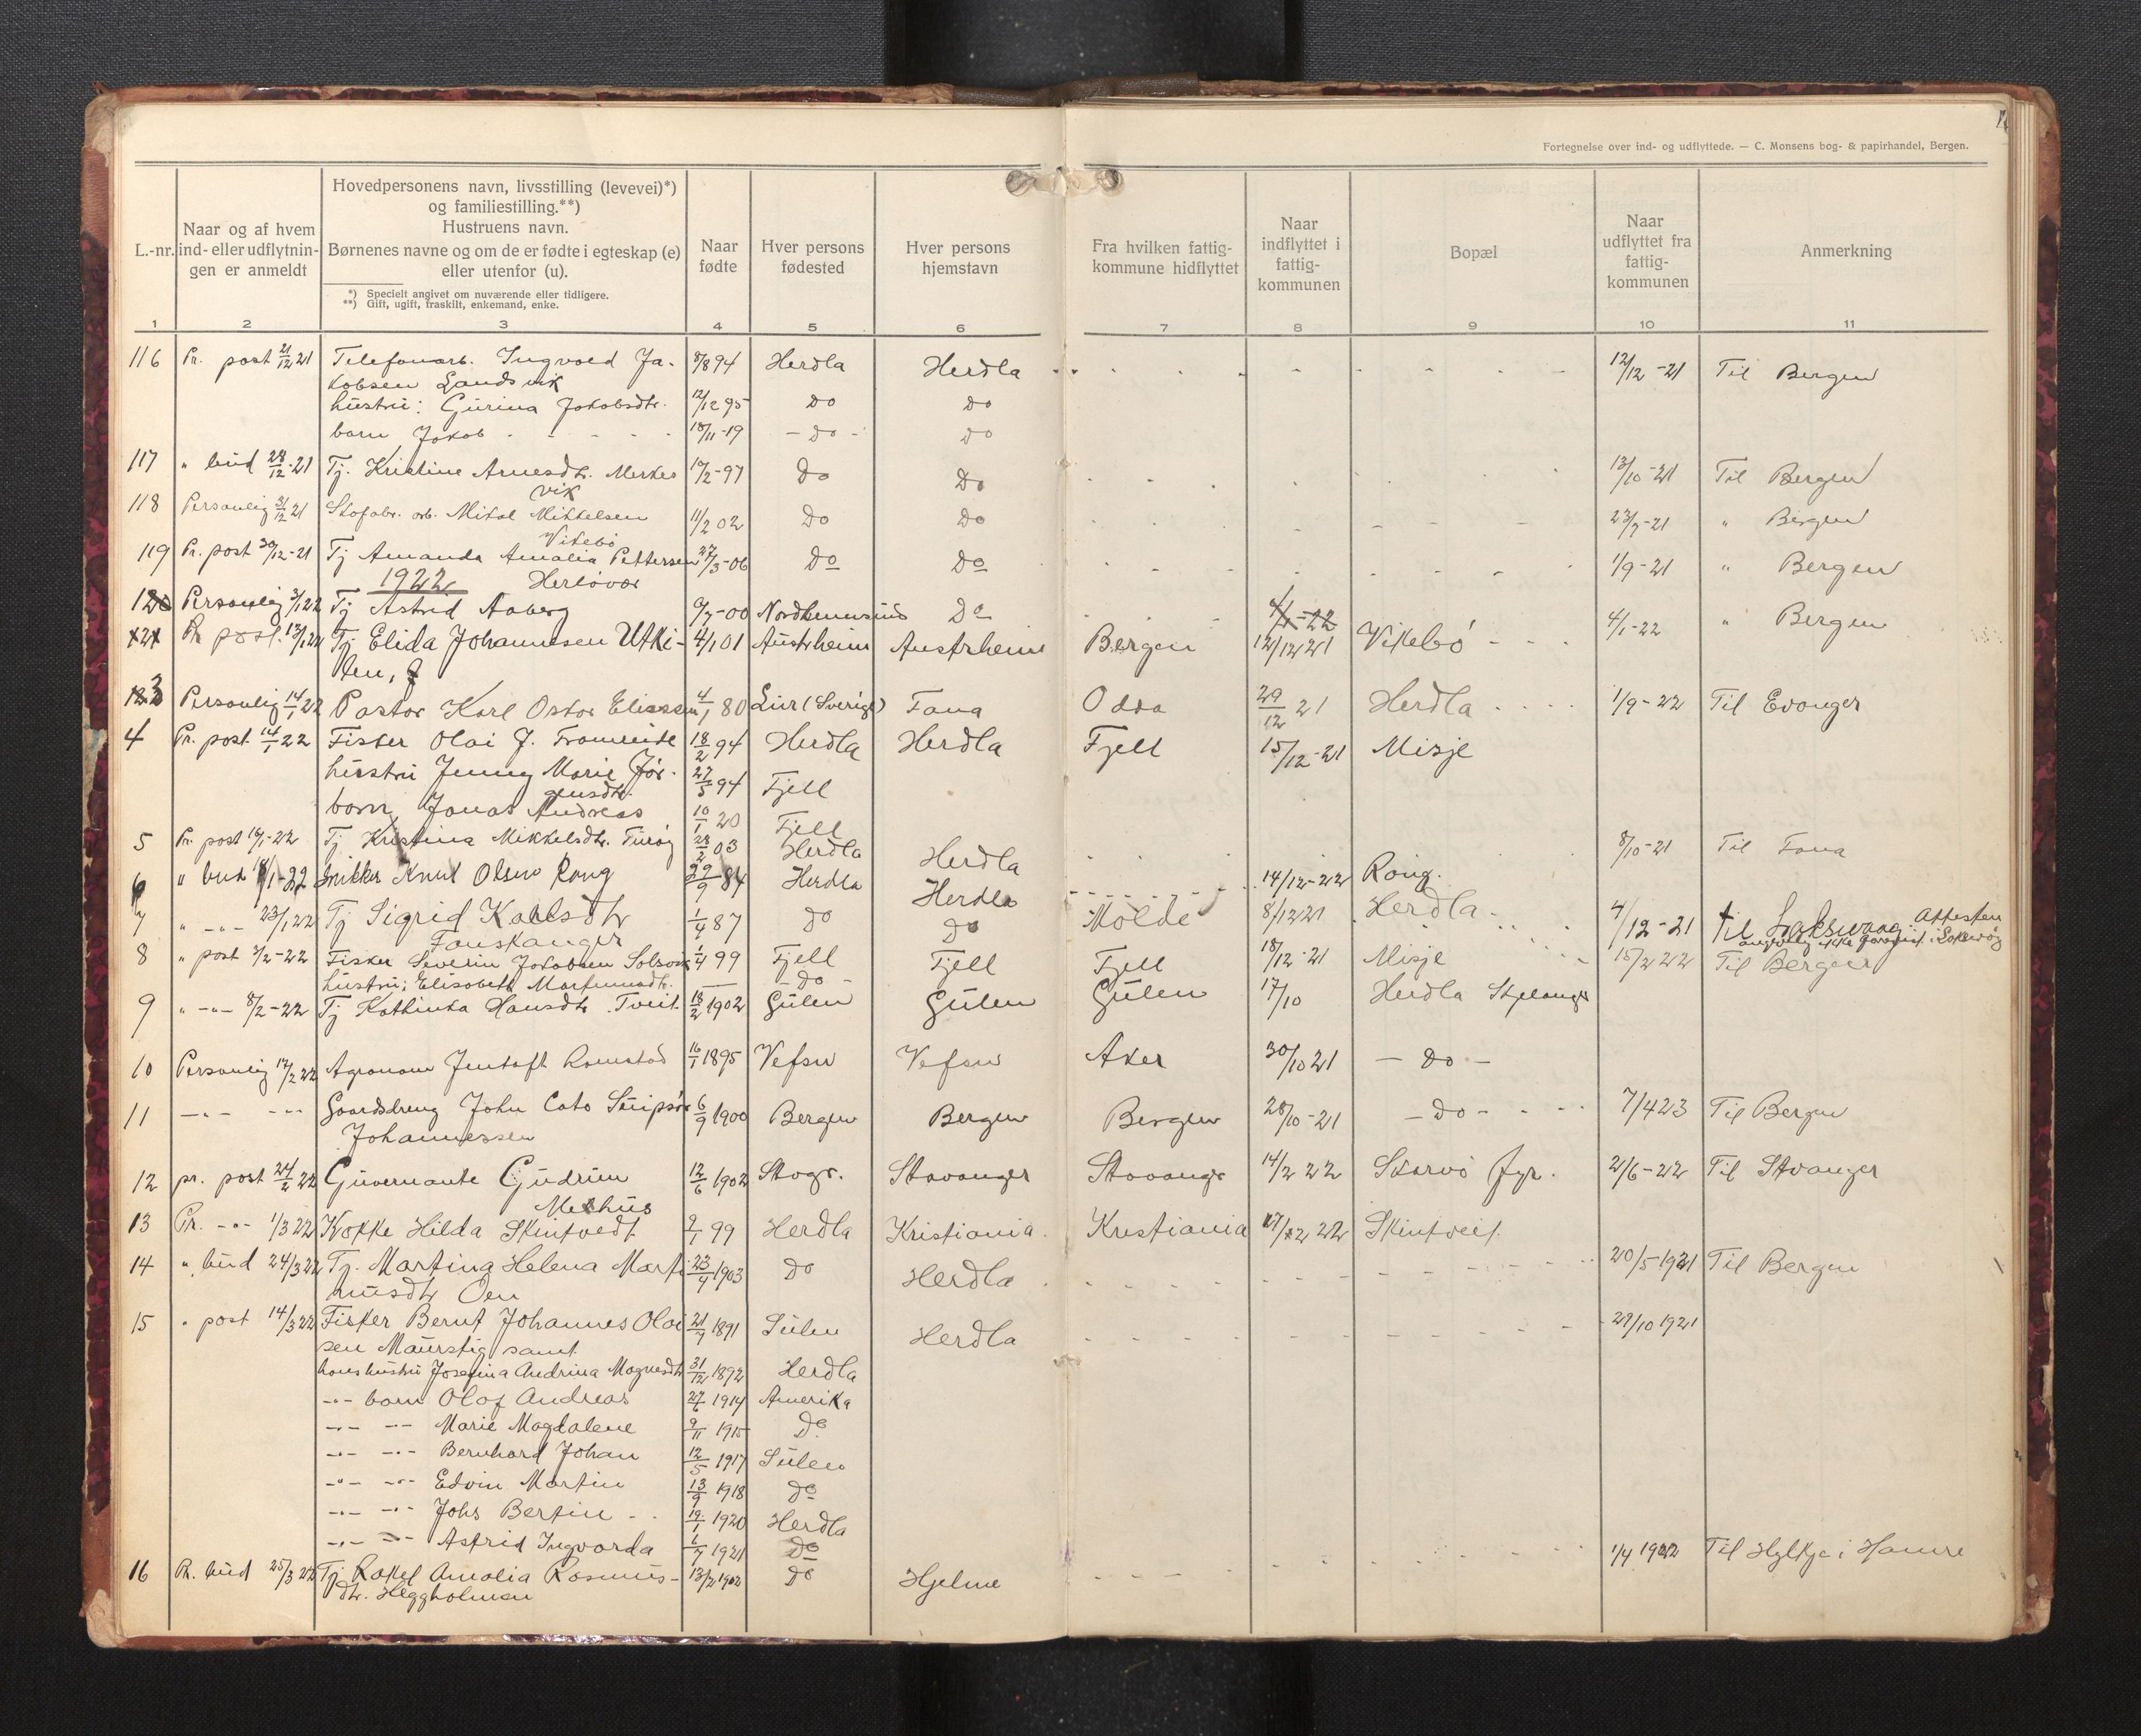 Fortegnelse over ind- og udflyttede. — C. Monsens bog- & papirhandel, Bergen.
L.-nr.
Naar og af hvem ind- eller udflytnin- gen er anmeldt
Hovedpersonens navn, livsstilling (levevei)*)
og familiestilling.**)
Hustruens navn.
Børnenes navne og om de er fødte i egteskap (e)
eller utenfor (u).
*) Specielt angivet om nuværende eller tidligere.
**) Gift, ugift, fraskilt, enkemand, enke.
Naar fødte
Hver persons fødested
Hver persons hjemstavn
Fra hvilken fattig- kommune hidflyttet
Naar indflyttet i fattig- kommunen
Bopæl
Naar udflyttet fra fattig- kommunen
Anmerkning
1 2 3 4 5 6 7 8 9 10 11
116 Pr. post 21/12 21 Telefonarb. Ingvald Ja- 8/8 94 Herdla Herdla 12/12 -21 Til Bergen
kobsen Landsvik
hustru: Gurina Jakobsdtr. 12/12 95 do do
barn Jakob 18/11-19 - do - do
117 " bud 28/12-21 Tj. Kristine Arnesdtr. Merkes 10/2-97 Do Do 13/10-21 Til Bergen
vik
118 Personlig 31/12 21 Mikal Mikkelsen 11/2 02 Do Do 23/7-21 " Bergen
Vikebö
119 Pr. post 30/12-21 Tj Amanda Amalia Pettersen 27/3-06 Do Do 1/9-21 " Bergen
1922 Herløvær
120 Personlig 3/1 22 Tj Astrid Aaberg 9/7-00 Nordheimsund Do 4/1-22 4/1-22 " Bergen
121 Pr post. 13/1 22 Tj Elida Johannesen Utki- 4/1 01 Austrheim Austrheim Bergen 12/12 21 Vikebö
len,
3 Personlig 14/1 22 Pastor Karl Oskar Eliassen 4/1 80 Lur (Sverige) Fana Odda 29/12 21 Herdla 1/9-22 Til Evanger
4 Pr. post 14/1 22 Fisker Olai J. Framneide 18/2 94 Herdla Herdla Fjell 15/12-21 Misje
hustru Jenny Marie Jör- 27/5 94 Fjell
gensdtr.
barn Jonas Andreas 10/1 20 Fjell
5 Pr. post 16/1-22 Tj Kristina Mikkelsdtr. Turöy 28/2 03 Herdla Herdla 8/10-21 Til Fana
6 " bud 18/1-22 Snikker Knut Olsen Rong 29/9 84 Herdla Herdla 14/12-22 Rong.
7 " -"- 23/1 22 Tj Sigrid Karlsdtr 1/4 87 do Do Molde 8/12 21 Herdla 4/12-21 til Laksevaag. Attesten
Fauskanger
8 " post 3/2-22 Fisker Severin Jakobsen Solsvik 1/4 99 Fjell Fjell Fjell 18/12-21 Misje 15/2 22 Til Bergen
hustru; Elisabeth Marfunnsdtr. - do -
9 " -"- 8/2-22 Tj Kathinka Hansdtr Tveit 13/2 1902 Gulen Gulen Gulen 17/10 Herdla Skjelanger
10 Personlig 17/2 22 Agronom Jentoft Ramstad 16/1 1895 Vefsn Vefsn Aker 30/10 21 - do -
11 -"- -"- Gaardsdreng John Cato 6/9 1900 Bergen Bergen Bergen 28/10-21 - do - 7/4 23 Til Bergen
Johannessen
12 pr. post 24/2 22 Guvernante Gudrun 12/6 1902 Stvgr. Stavanger Stavanger 14/2 22 fyr. 21/6-22 Til Stvanger
Mexhus
13 Pr. -"- 1/3 22 Kokke Hilda Skintveit 9/1 99 Herdla Kristiania Kristiania Skintveit.
14 " bud 24/3 22 Tj. Martina Helena Mart- 23/4 1903 Do Herdla 20/5-1921 Til Bergen
nusdtr Oen
15 " post 14/3 22 Fisker Bernt Johannes Olai 21/7 1891 Sulen Herdla 29/10 1921
sen Maurstig samt
hans hustru Josefina Andrina Magnesdtr 31/12 1892 Herdla
-"- barn Olaf Andreas 27/6 1914 Amerika
-"- -"- Marie Magdalene 9/11 1915 Do
-"- -"- Bernhard Johan 12/5 1917 Sulen
-"- -"- Edvin Martin 13/9 1918 do
-"- -"- Johs Bertin 19/1 1920 Herdla
-"- -"- Astrid Ingvarda 1/7 1921 Do
16 Pr. bud 25/3 22 Tj Rakel Amalia Rasmus- 13/2 1902 Do Hjelme 1/4 1922 Til Hylkje i Hamre
dtr. Heggholmen